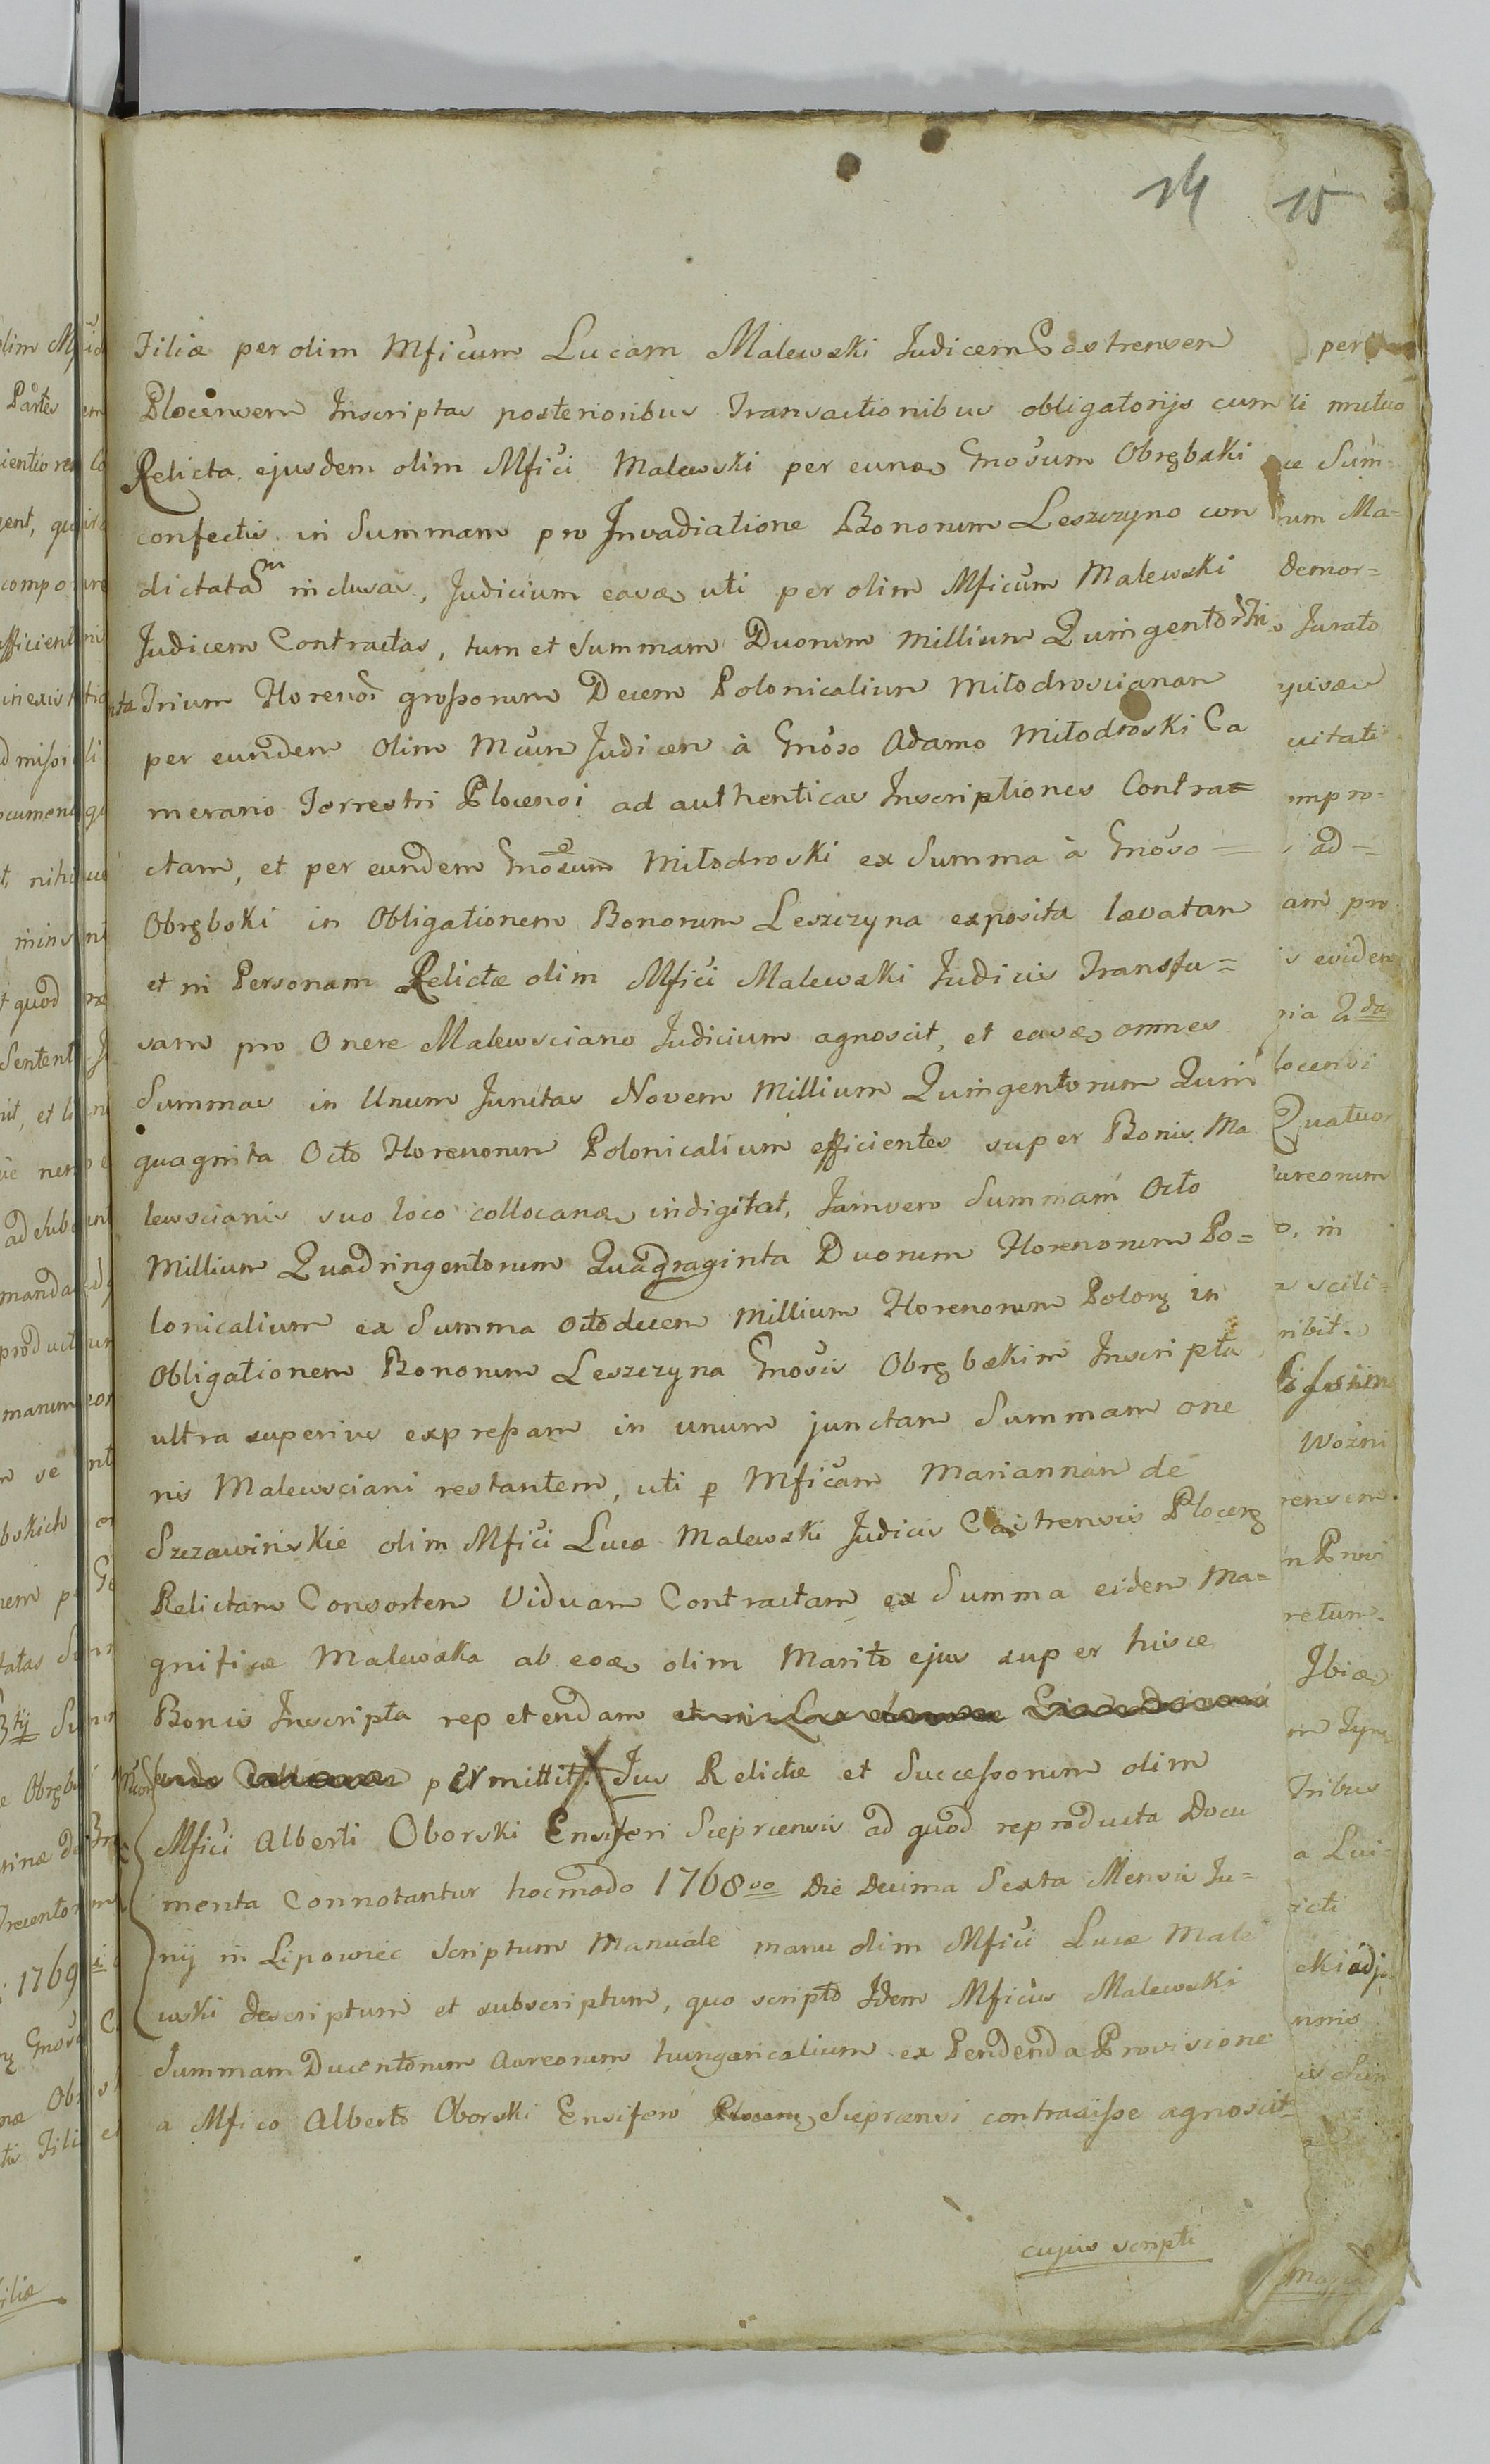 14 15
Filiæ per olim Mficum Lucam Malewski Judicem Castrensem
Plocensem Inscriptas posterioribus Transactionibus obligatorijs cum
Relicta ejusdem olim Mfici Malewski per eund Gnosum Obrębski
confectis in Summam pro Invadiatione Bonorum Leszczyno con
dictatam inclusas, Judicium easd uti per olim Mficum Malewski
Judicem Contractas, tum et Summam Duorum Millium Quingentor
Trium Florenor grossorum Decem Polonicalium Miłodroscianam
per eundem olim Mcum Judicem à Gnoso Adamo Miłodroski Ca
merario Terrestri Plocensi ad authenticas Inscriptiones Contra=
ctam, et per eundem Gnosum Miłodroski ex Summa à Gnoso =
Obrębski in Obligationem Bonorum Leszczyna exposita lævatam
et in Personam Relictæ olim Mfici Malewski Judicis Transfu=
sam pro Onere Malewsciano Judicium agnoscit, et easd omnes
Summas in Unum Junctas Novem Millium Quingentorum Quin
quaginta Octo Florenorum Polonicalium efficientes super Bonis Ma
lewscianis suo loco collocand indigitat, Jamvero Summam Octo
Millium Quadringentorum Quadraginta Duorum Florenorum Po=
lonicalium ex Summa octodecem Millium Florenorum Polon in
Obligationem Bonorum Leszczyna Gnosis Obrębskim Inscripta
ultra superius expressam in unum junctam Summam one
ris Malewsciani restantem, uti p Mficam Mariannam de
Szczawińskie olim Mfici Lucæ Malewski Judicis Castrensis Plocen
Relictam Consortem Viduam Contractam ex Summa eidem Ma=
gnificæ Malewska ab eod olim Marito ejus super hisce
Bonis Inscripta repetendam
permittit. Jus Relictæ et Successorum olim
Mfici Alberti Oborski Ensiferi Sieprcensis ad quod reproducta Docu
menta Connotantur hocmodo 1768vo Die Decima Sexta Mensis Ju=
nij in Lipowiec Scriptum Manuale manu olim Mfici Lucæ Male
wski descriptum et subscriptum, quo scripto Idem Mficus Malewski
Summam Ducentorum Aureorum hungaricalium ex Pendenda Provisione
a Mfico Alberto Oborski Ensifero Sieprcensi contraxisse agnoscit
cujus scripti